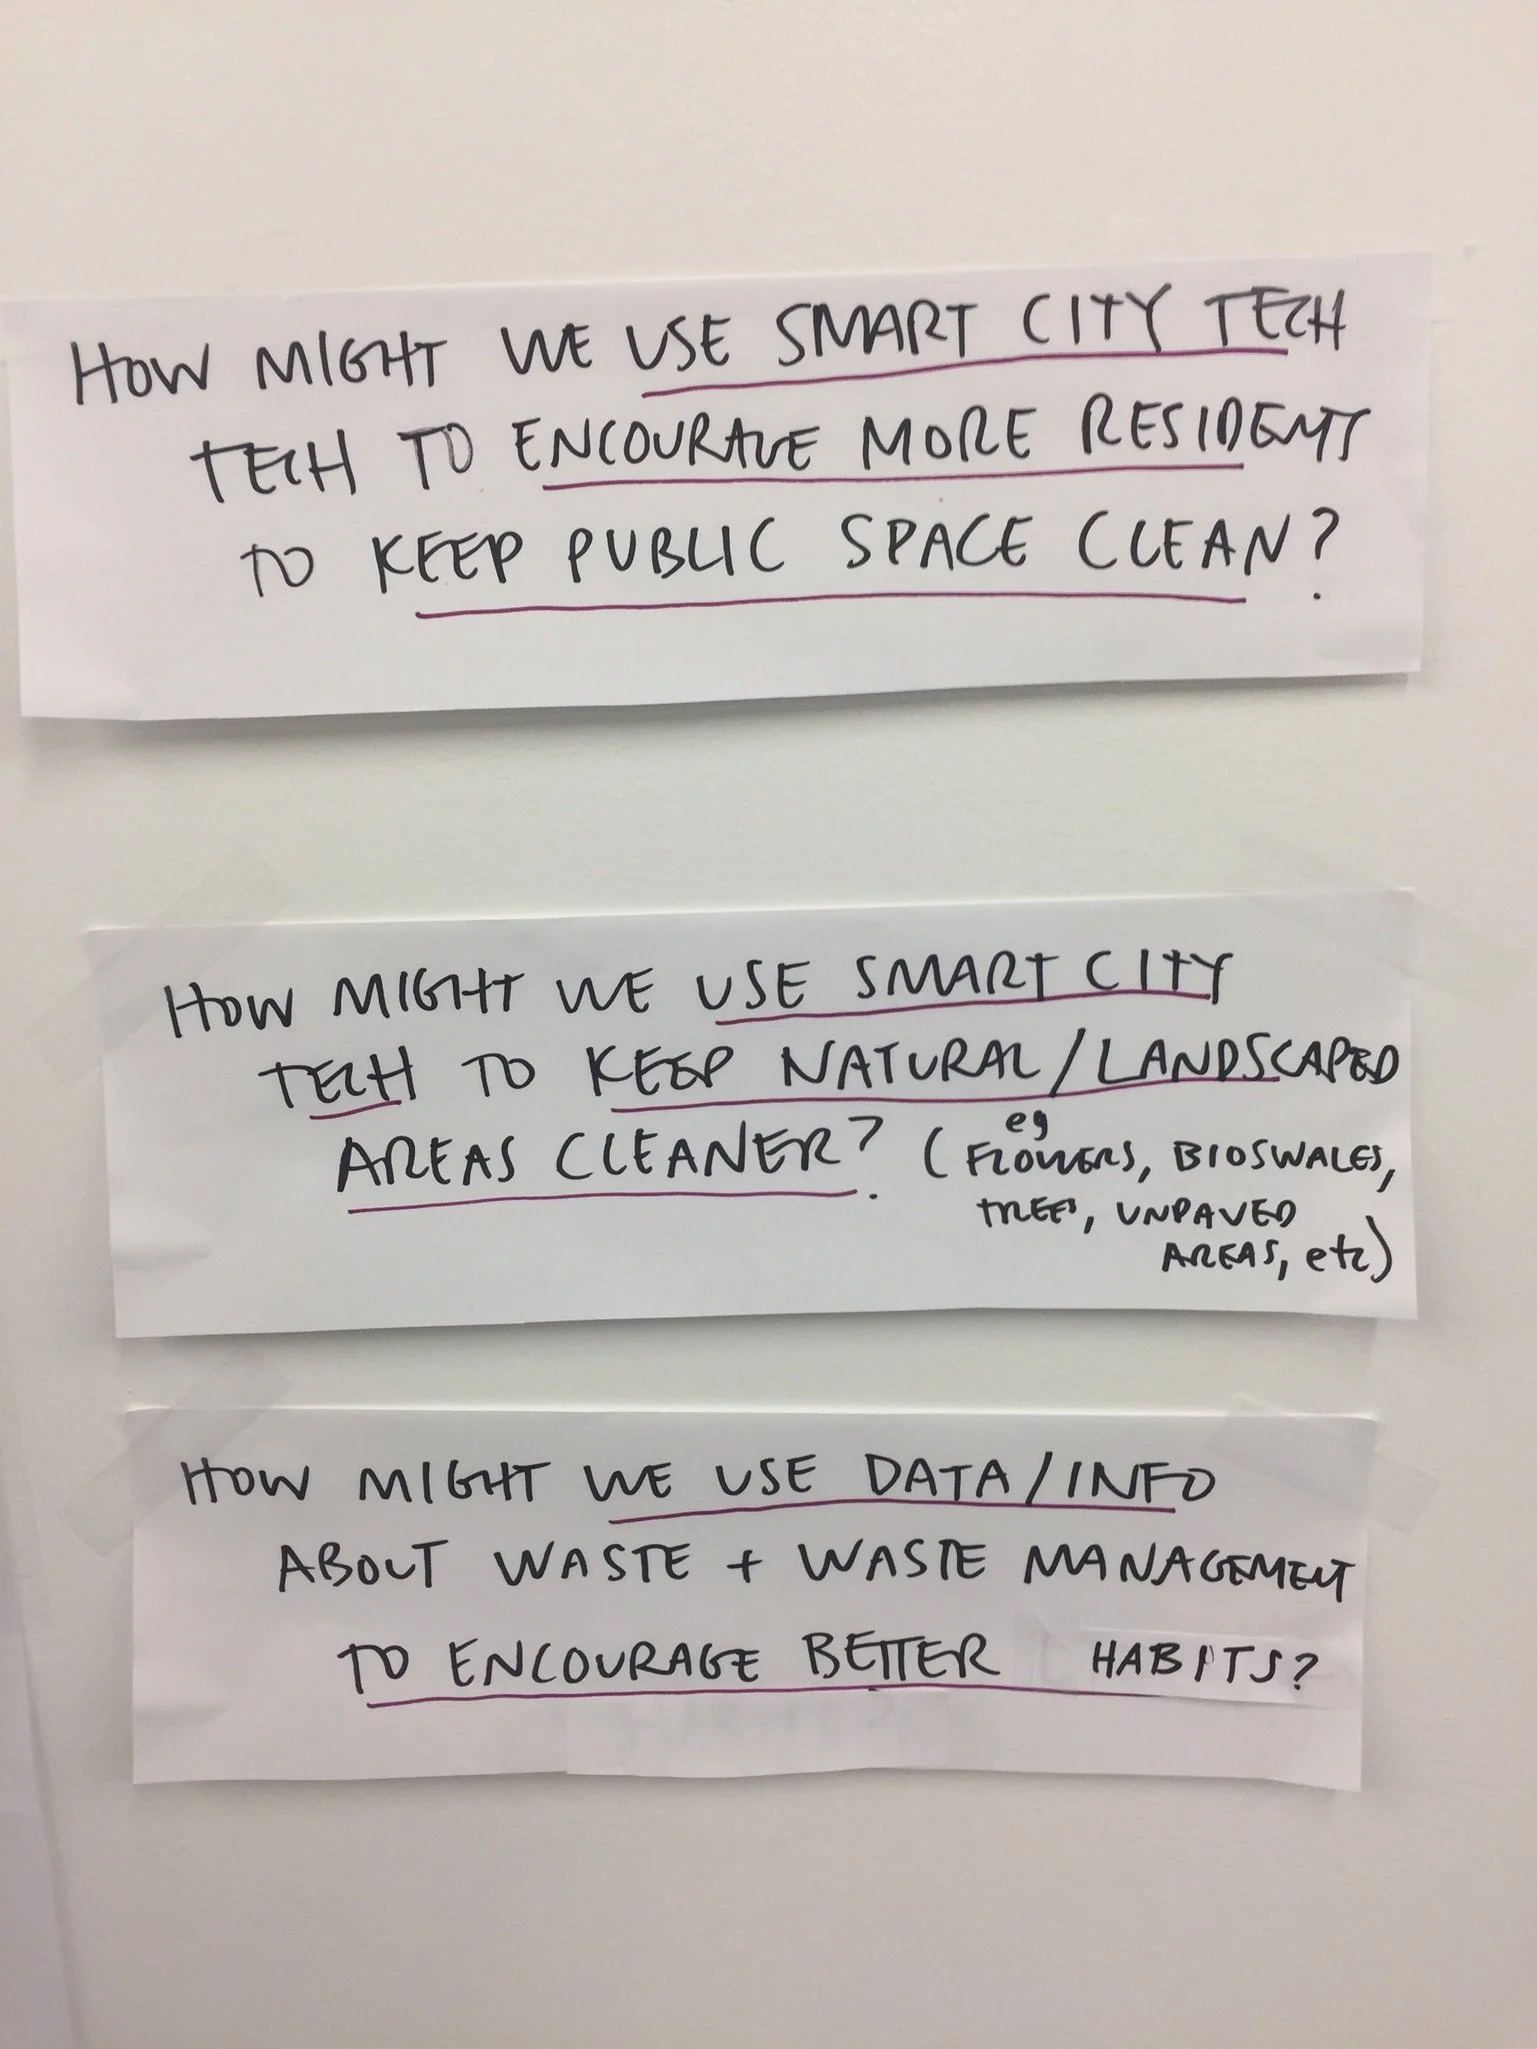 HOW MIGHT WE USE SMART CITY TECH
TECH TO ENCOURAGE MORE RESIDENTS
TO KEEP PUBLIC SPACE CLEAN?
HOW MIGHT WE USE SMART CITY
TECH TO KEEP NATURAL/LANDSCAPED
AREAS CLEANER? (eg FLOWERS, BIOSWALES,
TREES, UNPAVED
AREAS, etc)
HOW MIGHT WE USE DATA/INFO
ABOUT WASTE + WASTE MANAGEMENT
TO ENCOURAGE BETTER HABITS?